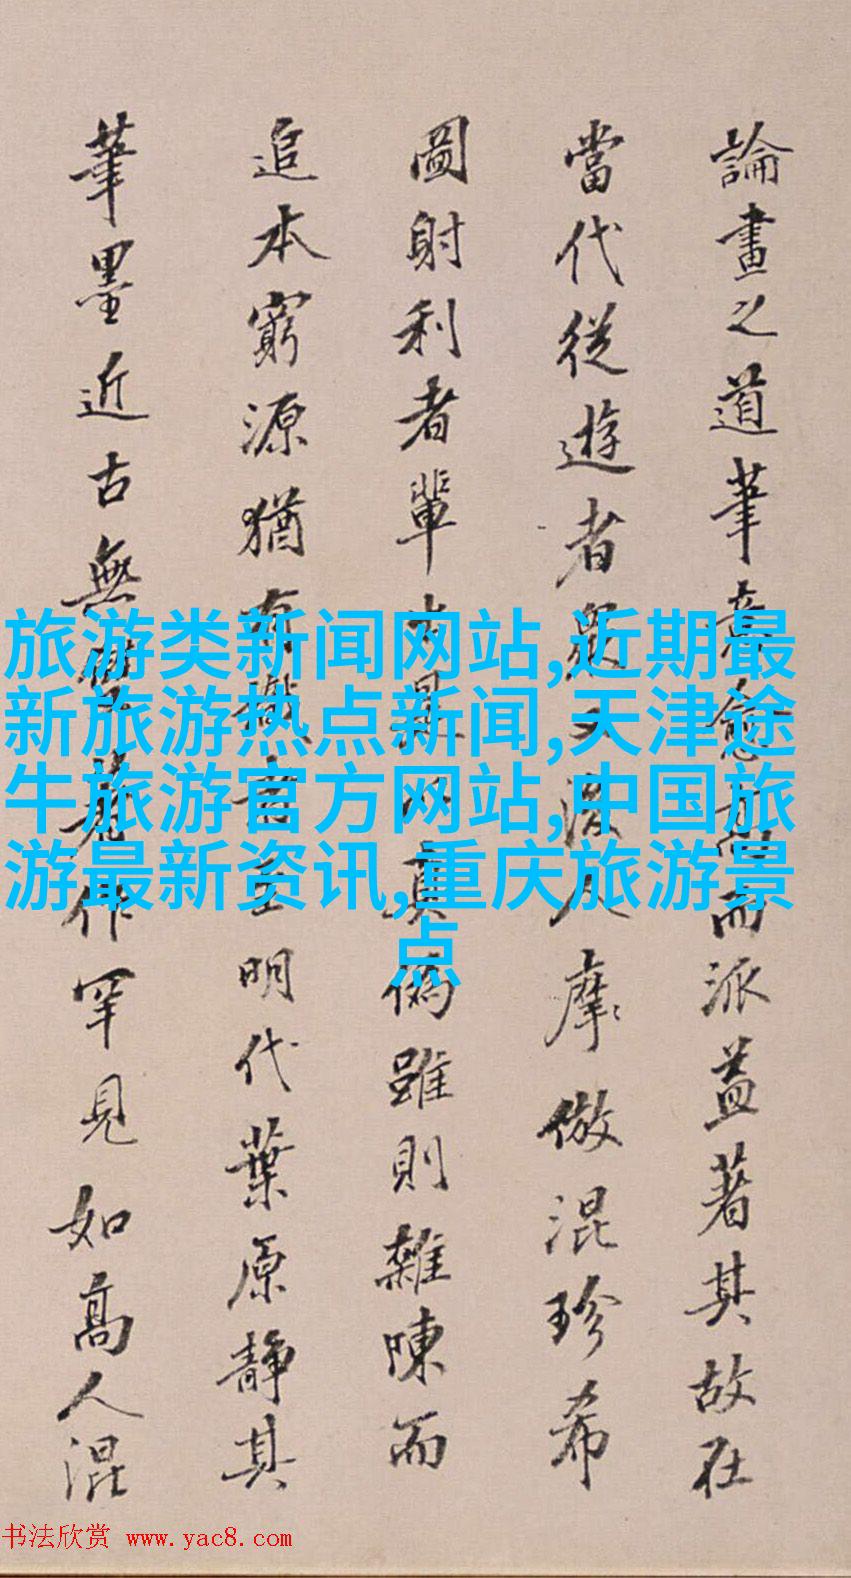 論畫之道筆意愈高而派益著其故在
當代從遊者眾又後人摩倣混珍希
圖射利者輩出是以真偽雖則雜陳而
追本窮源猶有明代葉原靜其
筆墨近古無作罕見如高人混
旅游类新闻网站,近期最
新旅游热点新闻,天津途
牛旅游官方网站,中国旅
游最新资讯,重庆旅游景
点
书法欣赏 www.yac8.com